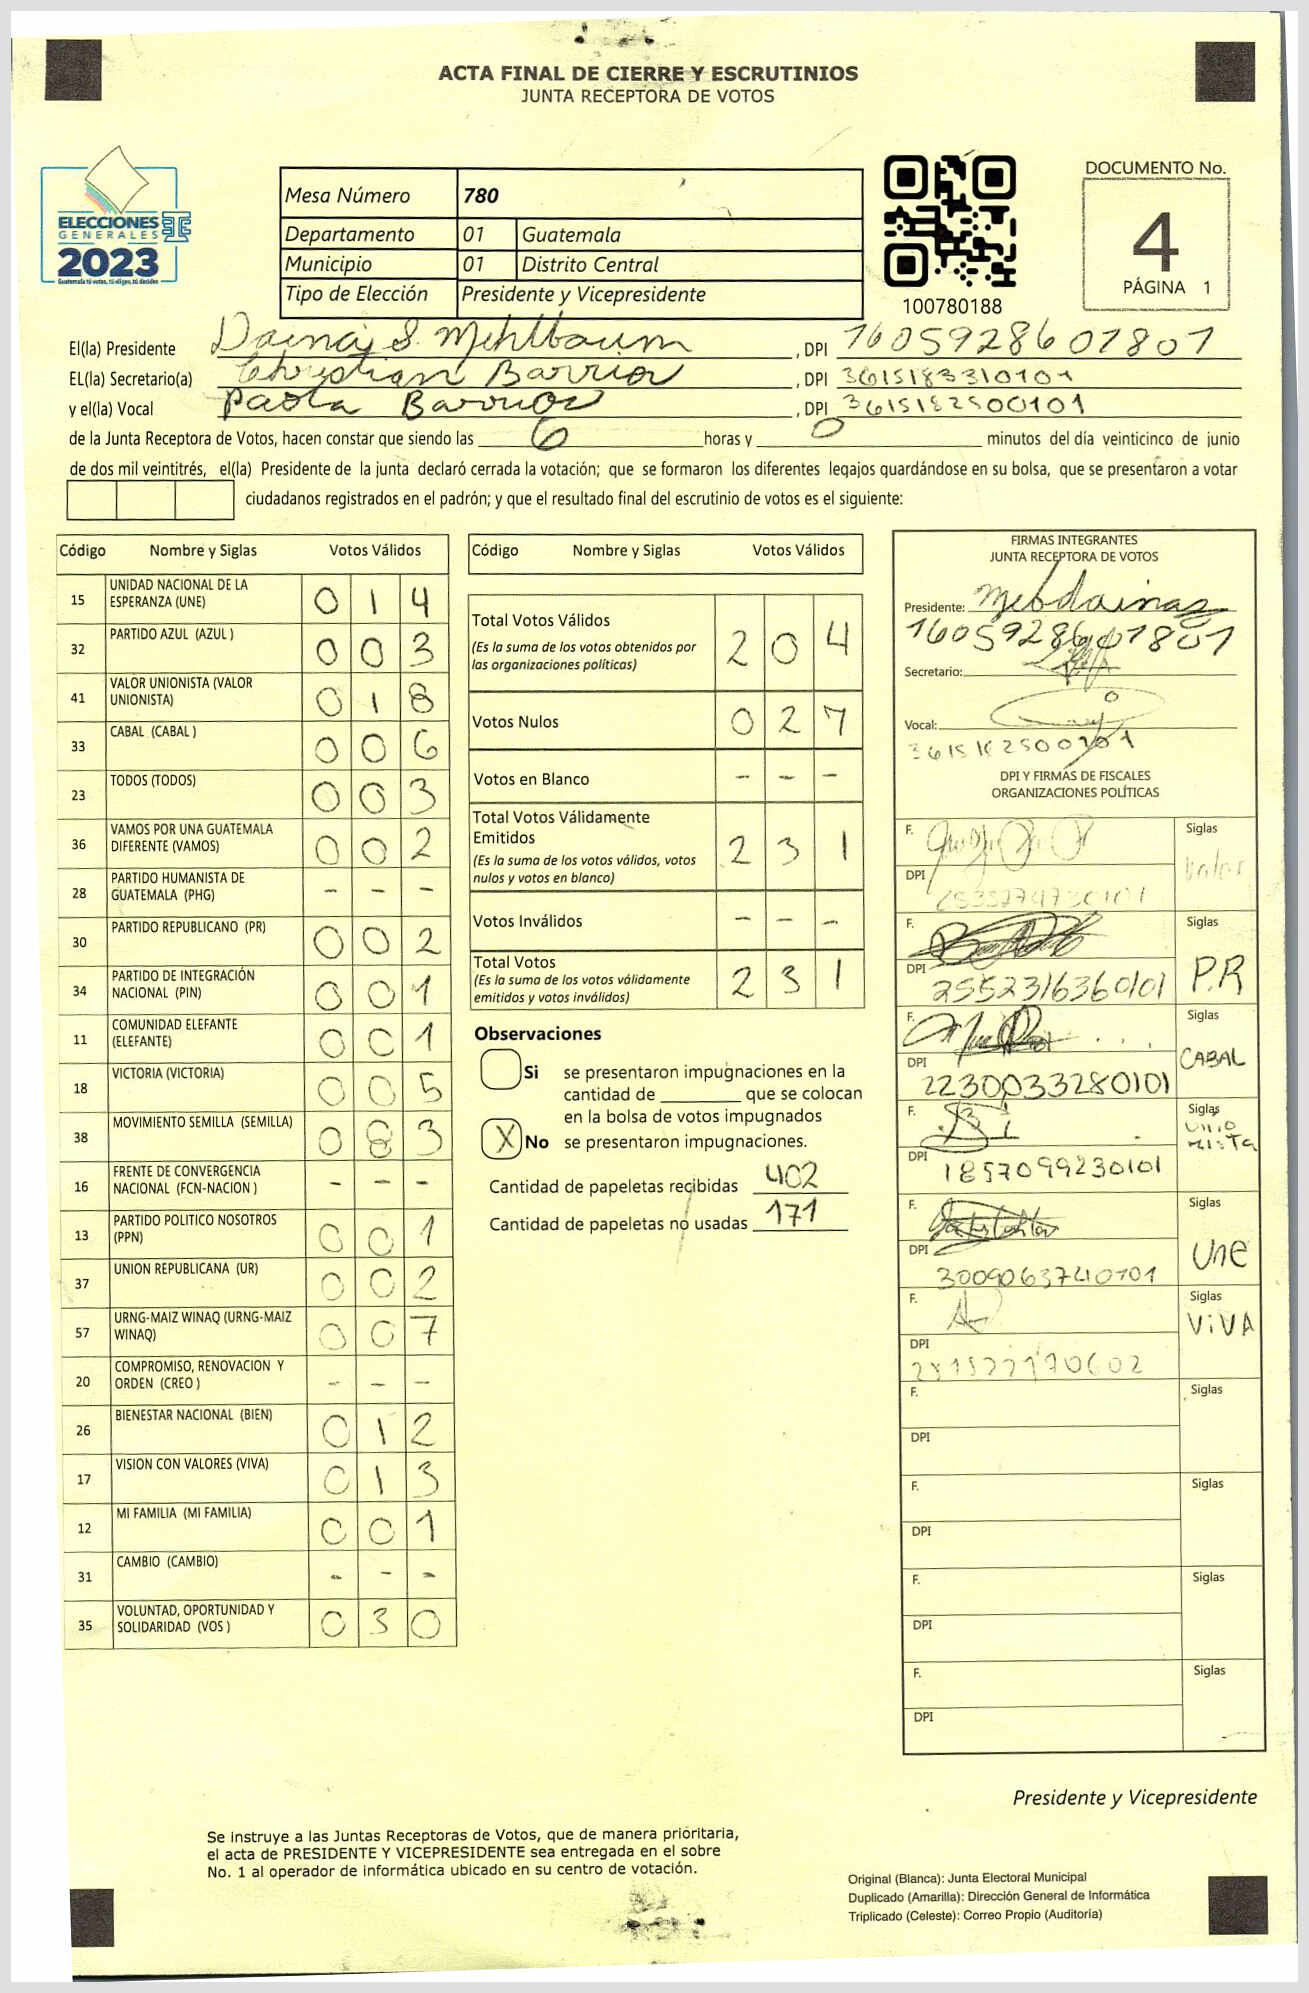 ACTA FINAL DE CIERRE Y ESCRUTINIOS
JUNTA RECEPTORA DE VOTOS
ELECCIONES
GENERALES
2023
Guatemala tú votas, tú eliges, tú decides
Mesa Número 780
Departamento 01 Guatemala
Municipio 01 Distrito Central
Tipo de Elección Presidente y Vicepresidente
100780188
DOCUMENTO No.
4
PÁGINA 1
El(la) Presidente Dainaj S. Mehlbaum, DPI 1605928601801
EL(la) Secretario(a) Christian Barrios, DPI 3615183310101
y el(la) Vocal Paola Barrios, DPI 3615182500101
de la Junta Receptora de Votos, hacen constar que siendo las 6 horas y 0 minutos del día veinticinco de junio
de dos mil veintitrés, el(la) Presidente de la junta declaró cerrada la votación; que se formaron los diferentes legajos guardándose en su bolsa, que se presentaron a votar
ciudadanos registrados en el padrón; y que el resultado final del escrutinio de votos es el siguiente:
Código Nombre y Siglas Votos Válidos
15 UNIDAD NACIONAL DE LA ESPERANZA (UNE) 0 1 4
32 PARTIDO AZUL (AZUL ) 0 0 3
41 VALOR UNIONISTA (VALOR UNIONISTA) 0 1 8
33 CABAL (CABAL ) 0 0 6
23 TODOS (TODOS) 0 0 3
36 VAMOS POR UNA GUATEMALA DIFERENTE (VAMOS) 0 0 2
28 PARTIDO HUMANISTA DE GUATEMALA (PHG) - - -
30 PARTIDO REPUBLICANO (PR) 0 0 2
34 PARTIDO DE INTEGRACIÓN NACIONAL (PIN) 0 0 1
11 COMUNIDAD ELEFANTE (ELEFANTE) 0 0 1
18 VICTORIA (VICTORIA) 0 0 5
38 MOVIMIENTO SEMILLA (SEMILLA) 0 8 3
16 FRENTE DE CONVERGENCIA NACIONAL (FCN-NACION ) - - -
13 PARTIDO POLITICO NOSOTROS (PPN) 0 0 1
37 UNION REPUBLICANA (UR) 0 0 2
57 URNG-MAIZ WINAQ (URNG-MAIZ WINAQ) 0 0 7
20 COMPROMISO, RENOVACION Y ORDEN (CREO ) - - -
26 BIENESTAR NACIONAL (BIEN) 0 1 2
17 VISION CON VALORES (VIVA) 0 1 3
12 MI FAMILIA (MI FAMILIA) 0 0 1
31 CAMBIO (CAMBIO) - - -
35 VOLUNTAD, OPORTUNIDAD Y SOLIDARIDAD (VOS ) 0 3 0
Código Nombre y Siglas Votos Válidos
Total Votos Válidos 2 0 4
(Es la suma de los votos obtenidos por
las organizaciones políticas)
Votos Nulos 0 2 7
Votos en Blanco - - -
Total Votos Válidamente
Emitidos 2 3 1
(Es la suma de los votos válidos, votos
nulos y votos en blanco)
Votos Inválidos - - -
Total Votos 2 3 1
(Es la suma de los votos válidamente
emitidos y votos inválidos)
Observaciones
Si se presentaron impugnaciones en la
cantidad de ________ que se colocan
en la bolsa de votos impugnados
X No se presentaron impugnaciones.
Cantidad de papeletas recibidas 402
Cantidad de papeletas no usadas 171
FIRMAS INTEGRANTES
JUNTA RECEPTORA DE VOTOS
Presidente:
1605928601801
Secretario:
Vocal:
3615182500101
DPI Y FIRMAS DE FISCALES
ORGANIZACIONES POLÍTICAS
F. Siglas
DPI Valor
F. Siglas
DPI 2552316360101 P.R
F. Siglas
DPI 2230033280101 CABAL
F. Siglas
DPI 1857099230101 UNIONISTA
F. Siglas
DPI 3009063740101 UNE
F. Siglas
DPI VIVA
F. Siglas
DPI
F. Siglas
DPI
F. Siglas
DPI
F. Siglas
DPI
Presidente y Vicepresidente
Se instruye a las Juntas Receptoras de Votos, que de manera prioritaria,
el acta de PRESIDENTE Y VICEPRESIDENTE sea entregada en el sobre
No. 1 al operador de informática ubicado en su centro de votación.
Original (Blanca): Junta Electoral Municipal
Duplicado (Amarilla): Dirección General de Informática
Triplicado (Celeste): Correo Propio (Auditoria)